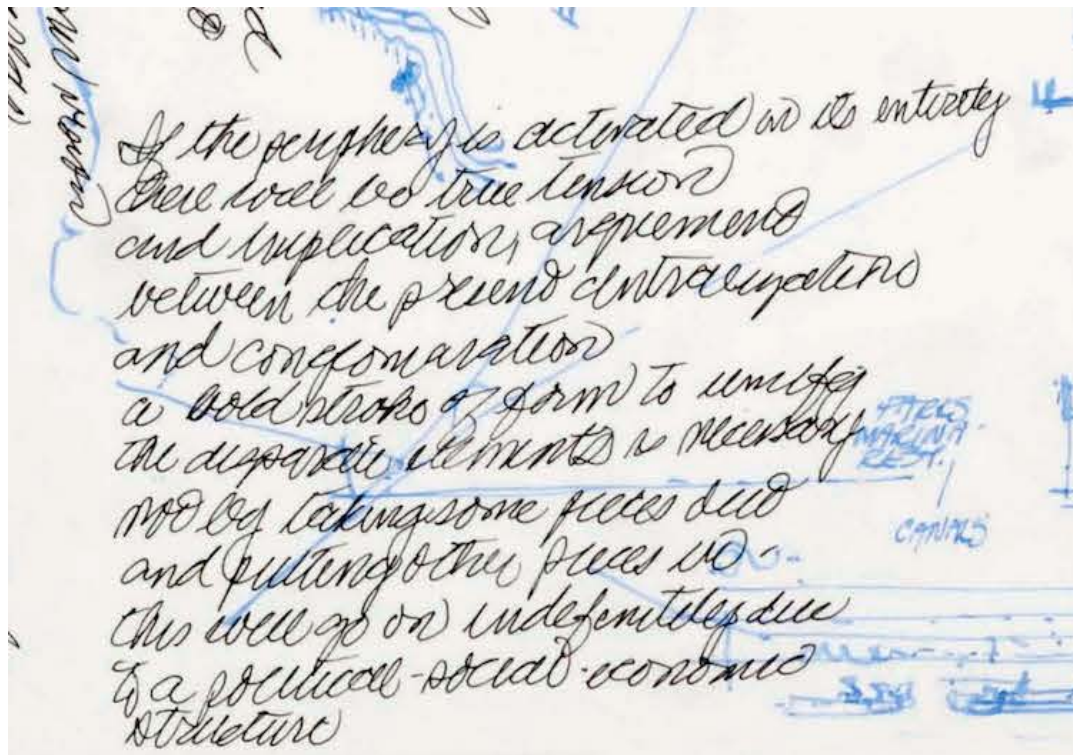 If the periphery is activated in its entirety
there will be true tension
and implication, arguement
between the present centralization
and conglomaration
a bold stroke of form to unify
the disparate elements is necessary
not by taking some pieces out
and putting other pieces in -
this will go on indefinitely due
to a political-social-economic
structure
PARKS
MARINA -
REST.
CANALS